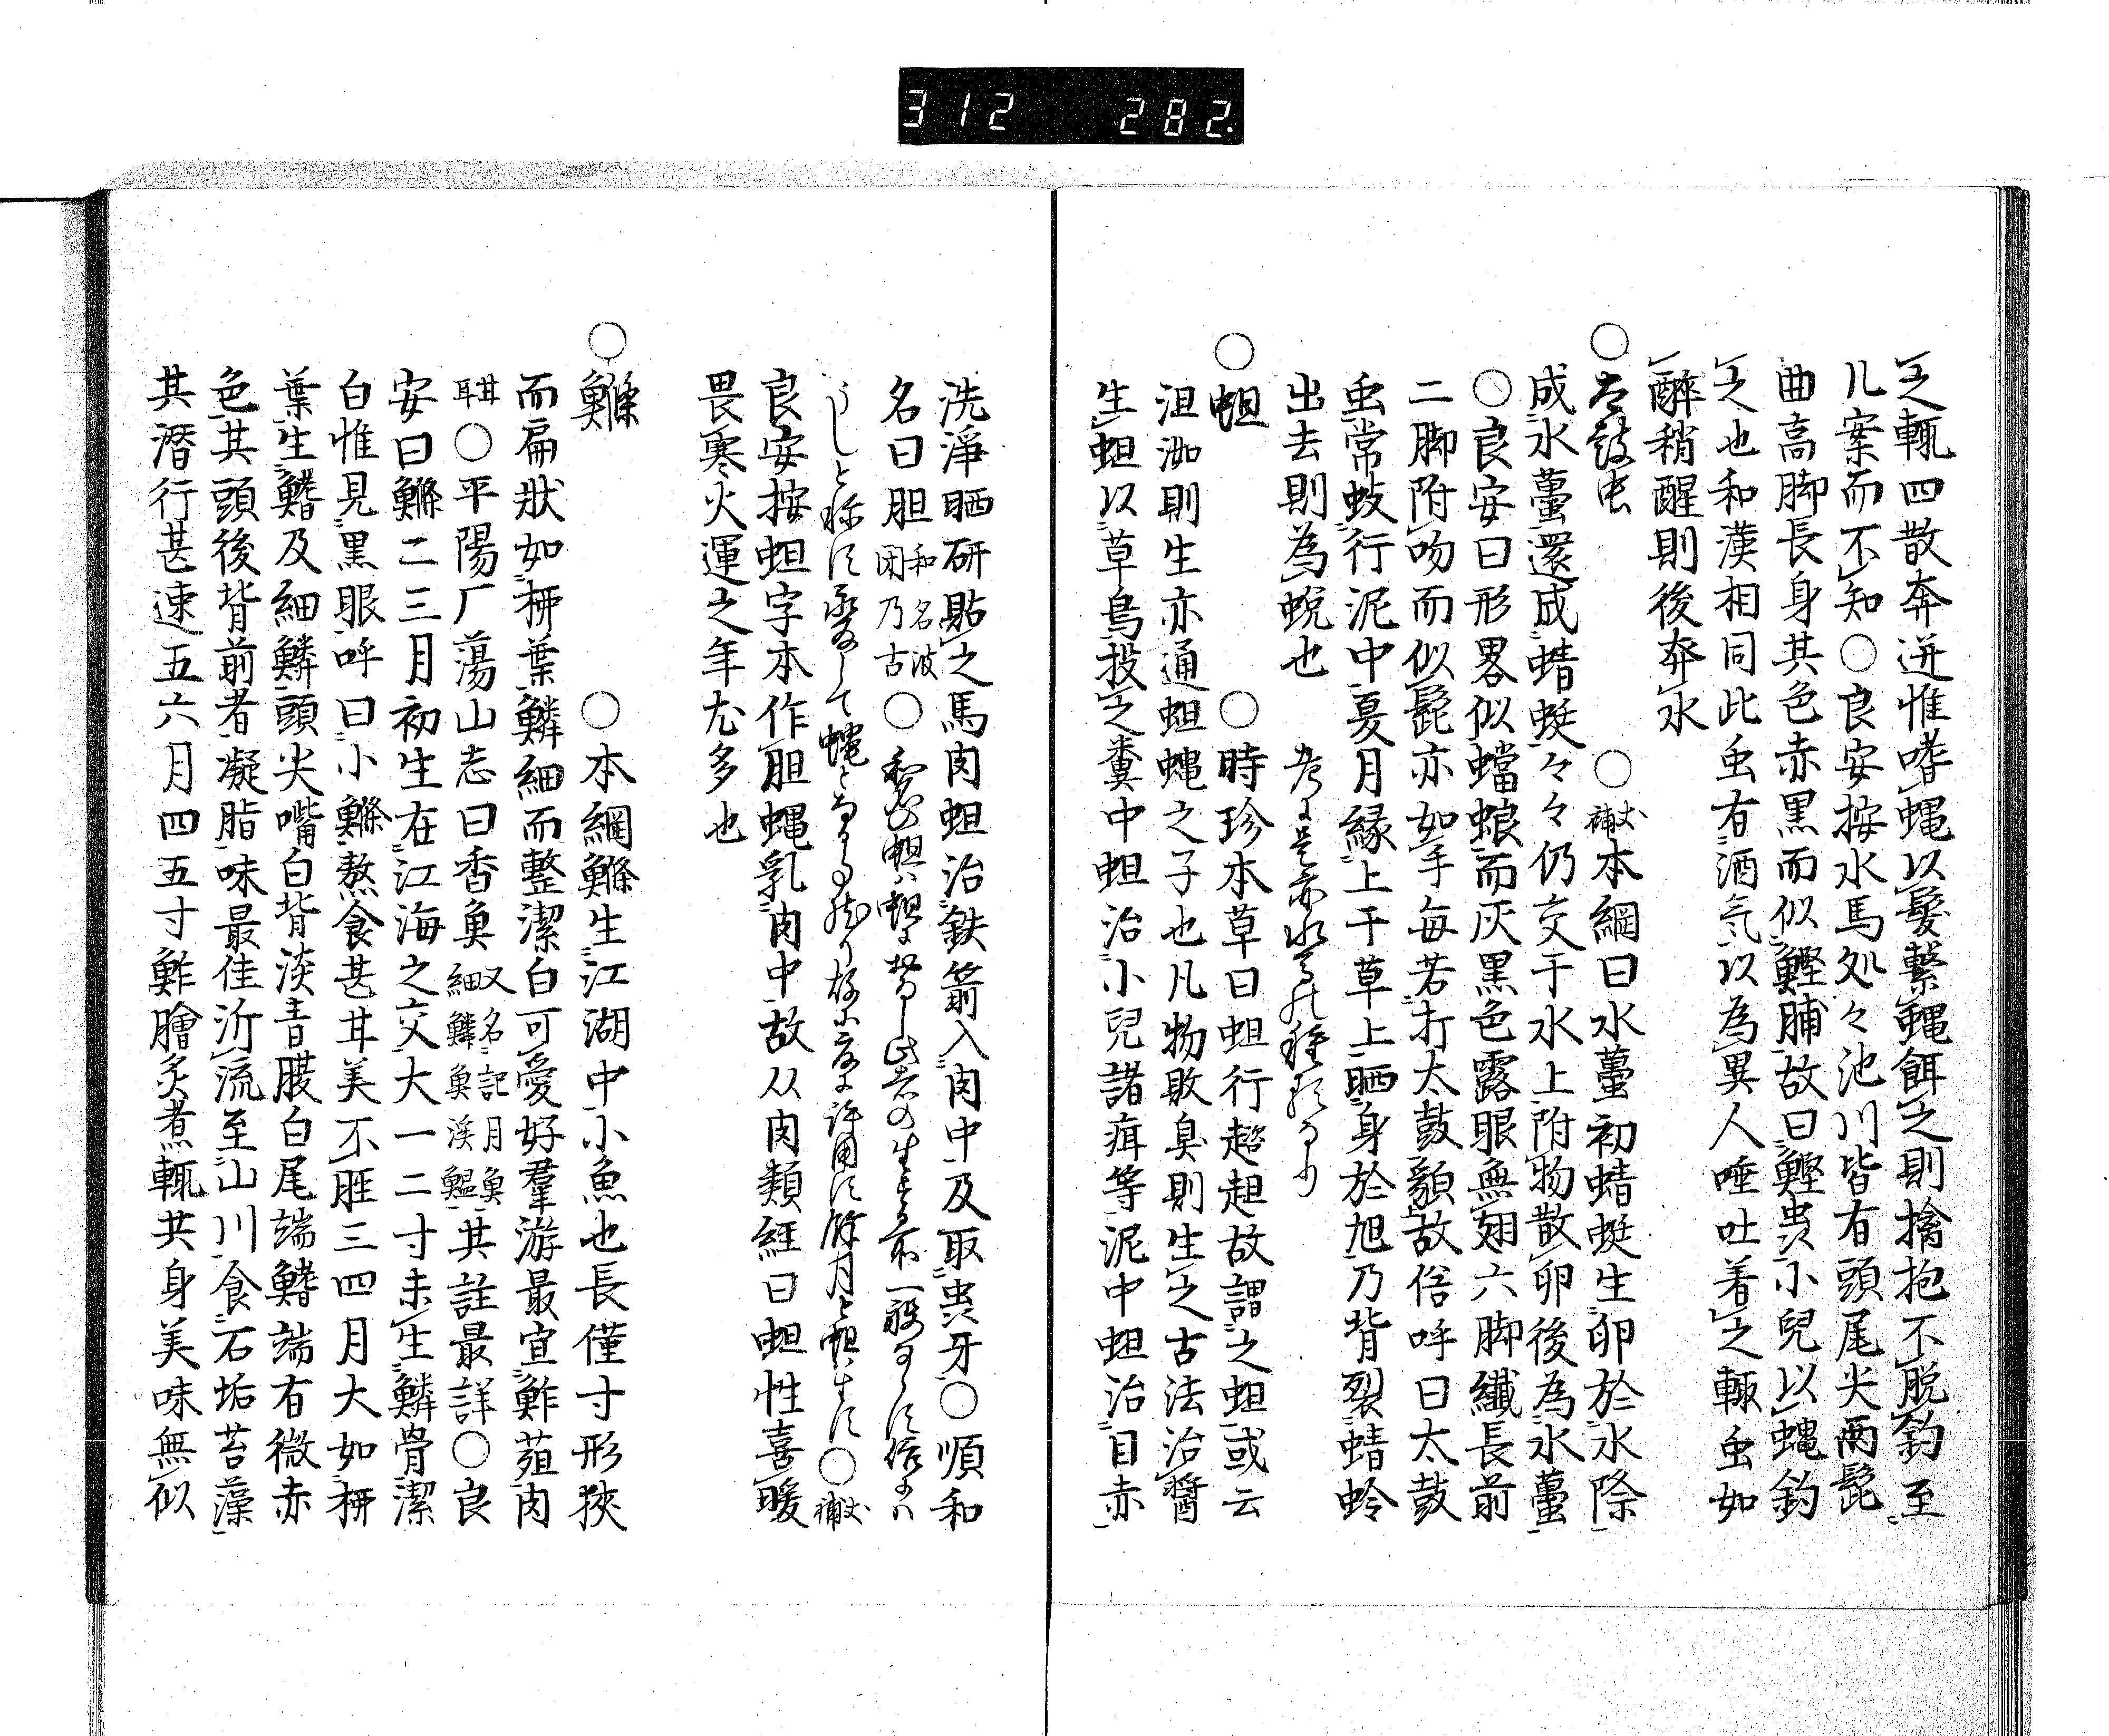 312 282.
之輙四散奔迸惟嗜蠅以髮繋蠅餌之則擒抱不脱釣至
儿案而不知○良安按水馬処々池川皆有頭尾尖両髭
曲高脚長身其色赤黒而似鰹脯故曰鰹虫小兒以蠅釣
之也和漢相同此虫有酒気以為異人唾吐着之輙虫如
醉稍醒則後奔水
○太鼓虫 ○補本綱曰水蠆初蜻蜓生卵於水際
成水蠆還成蜻蜓々々仍交于水上附物散卵後為水蠆
○良安曰形畧似蟷螂而灰黒色露眼無翅六脚纎長前
二脚附吻而似髭亦如手毎若打太鼓貌故俗呼曰太鼓
虫常蚑行泥中夏月縁上干草上晒身於旭乃背裂蜻蛉
出去則為蛻也
○蛆 ○時珍本草曰蛆行趦趄故謂之蛆或云
沮洳則生亦通蛆蠅之子也凡物敗臭則生之古法治醤
生蛆以草烏投之糞中蛆治小兒諸疳等泥中蛆治目赤
洗淨晒研貼之馬肉蛆治鉄箭入肉中及取虫牙○順和
名曰胆和名波閉乃古○
良安按蛆字本作胆蠅乳肉中故从肉類経曰蛆性喜暖
畏寒火運之年尤多也
○鰷 ○本綱鰷生江湖中小魚也長僅寸形狹
而扁狀如柳葉鱗細而整潔白可愛好羣游最宜鮓葅肉
甘○平陽厂蕩山志曰香魚又名記月魚細鱗魚渓鰮其註最詳○良
安曰鰷二三月初生在江海之交大一二寸未生鱗骨潔
白惟見黒眼呼曰小鰷熬食甚甘美不腥三四月大如柳
葉生鰭及細鱗頭尖嘴白背淡青腹白尾端鰭端有微赤
色其頭後背前者凝脂味最佳泝流至山川食石垢苔藻
其潛行甚速五六月四五寸鮓膾炙煮輙共身美味無似